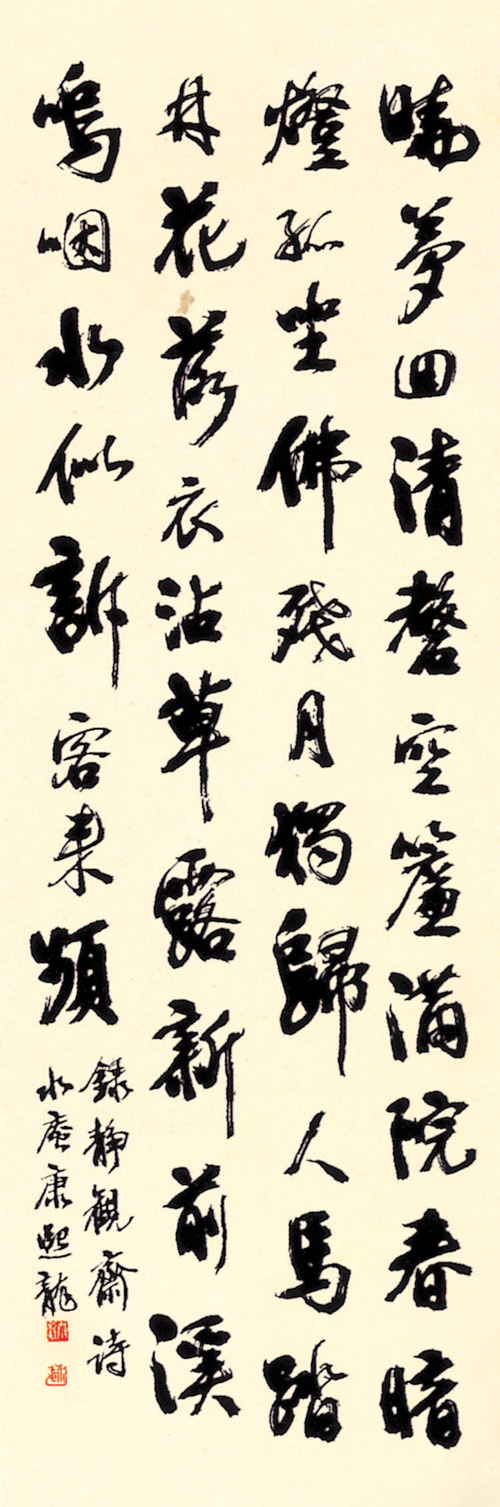 曉夢回清磬空簾滿院春暗
燈孤坐佛殘月獨歸人馬踏
林花落衣沾草露新前溪
嗚咽水似訴客来頻
錄靜觀齋詩
水庵康熙龍